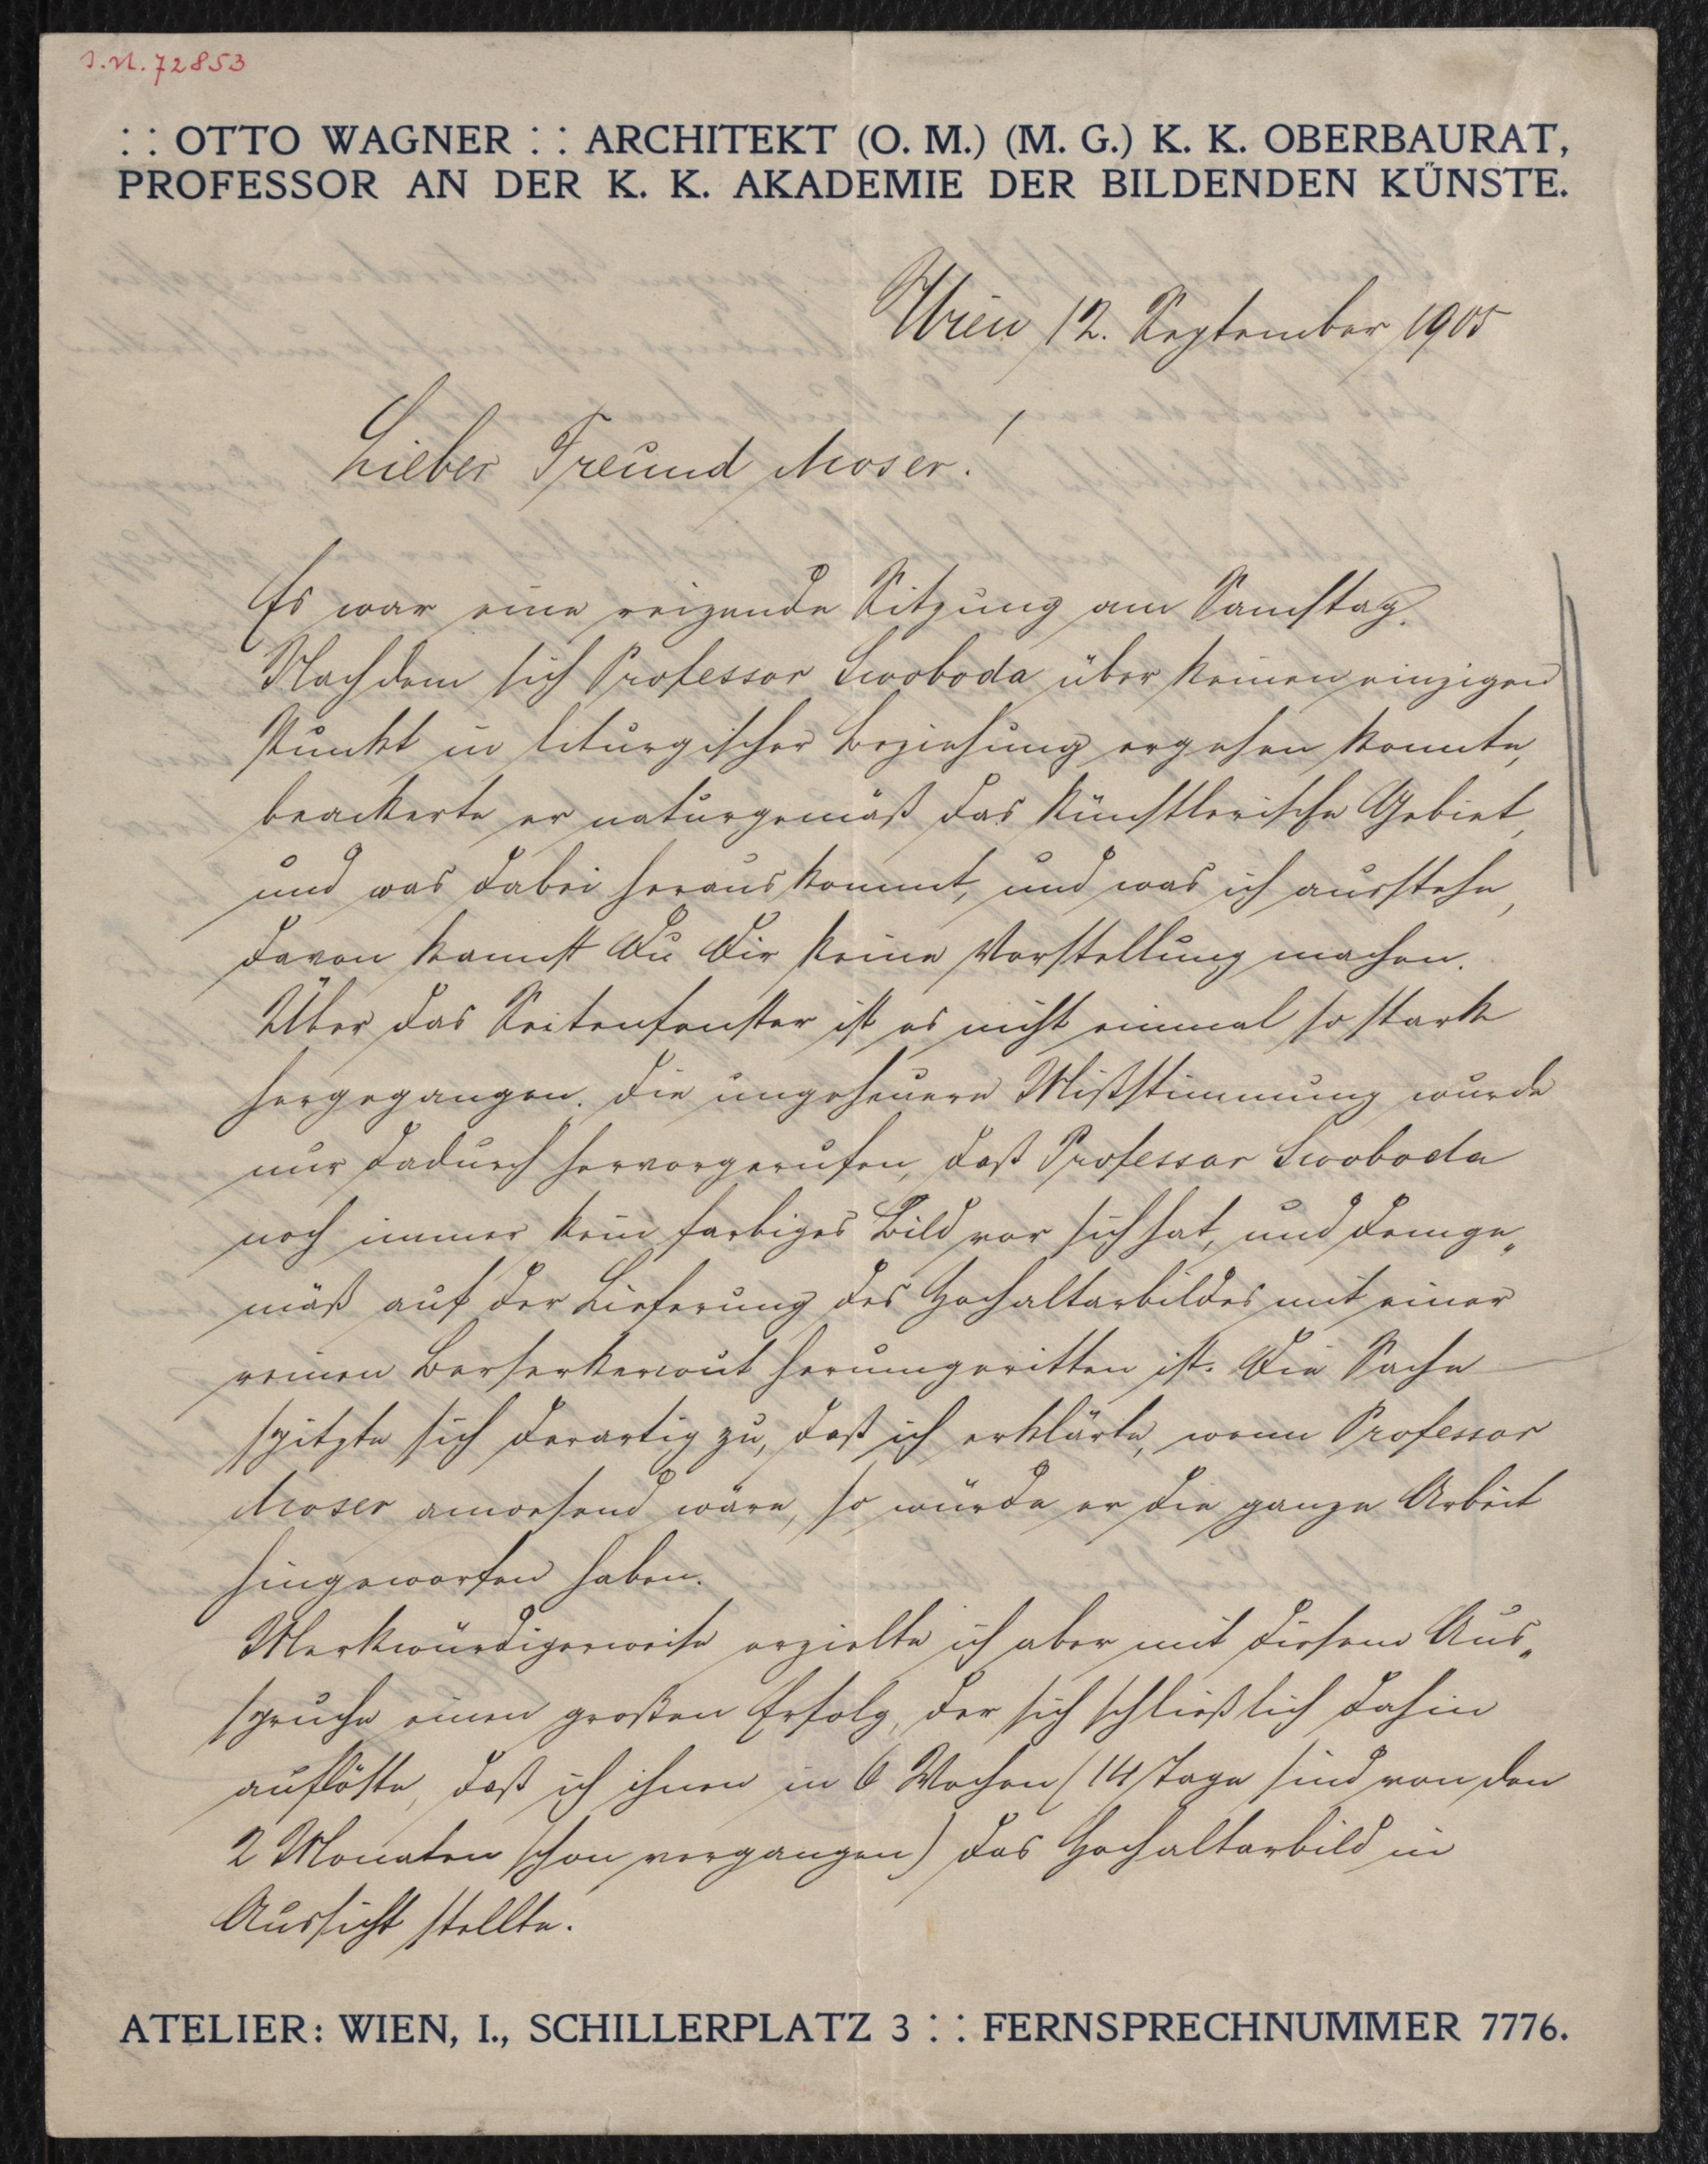 J.N. 72853
: : OTTO WAGNER : : ARCHITEKT (O. M.) (M. G.) K. K. OBERBAURAT,
PROFESSOR AN DER K. K. AKADEMIE DER BILDENDEN KÜNSTE.
Wien 12. September 1905
Lieber Freund Moser!
Es war eine reizende Sitzung am Samstag.
Nachdem sich Professor Swoboda über keinen einzigen
Punkt in liturgischer Beziehung ergehen konnte,
beackerte er naturgemäß das künstlerische Gebiet,
und was dabei herauskommt, und was ich ausstehe,
davon kannst Du Dir keine Vorstellung machen.
Über das Seitenfenster ist es nicht einmal so stark
hergegangen. Die ungeheuere Mißstimmung wurde
nur dadurch hervorgerufen, daß Professor Swoboda
noch immer kein farbiges Bild vor sich hat, und demge„
mäß auf der Lieferung des Hochaltarbildes mit einer
reinen Berserkerwut herumgeritten ist. Die Sache
spitzte sich derartig zu, daß ich erklärte, wenn Professor
Moser anwesend wäre, so würde er die ganze Arbeit
hingeworfen haben.
Merkwürdigerweise erzielte ich aber mit diesem Aus„
spruche einen großen Erfolg, der sich schließlich dahin
auflöste, daß ich ihnen in 6 Wochen (14 Tage sind von den
2 Monaten schon vergangen) das Hochaltarbild in
Aussicht stellte.
ATELIER: WIEN, I., SCHILLERPLATZ 3 : : FERNSPRECHNUMMER 7776.